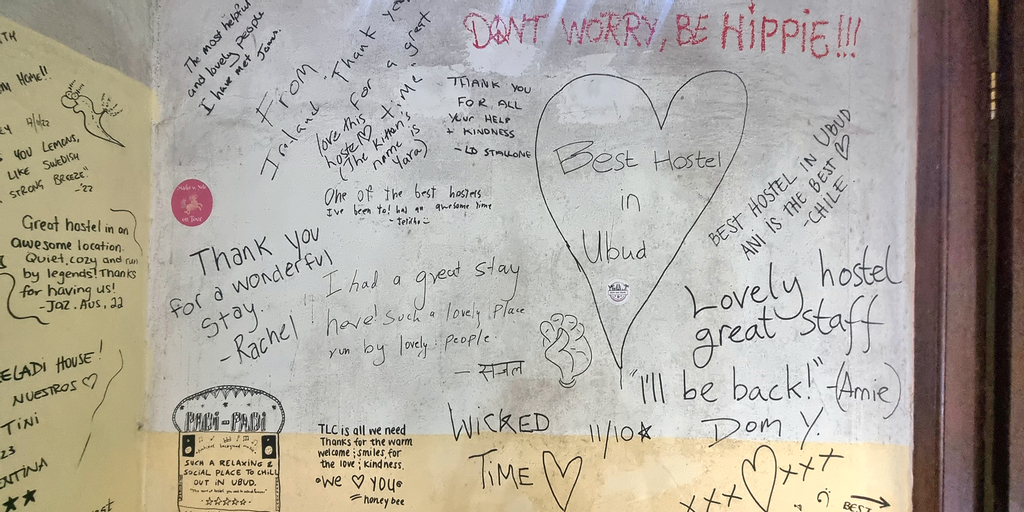 M HOME!!
S YOU LEMONS,
LIKE SWEDISH
STRONG BREEZE"
-'22
Great hostel in an
awesome location.
Quiet, cozy and run
by legends! Thanks
for having us!
-Jaz. Aus, 22
ELADI HOUSE!
NUESTROS ♡
TINI
23
ENTINA
★★
The most helpful
and lovely people
I have met
From
Ireland
Thank you
for a great
time
love this
hostel ♡
(the kitten's
name is
Yara)
DON'T WORRY, BE HiPPiE!!!
THANK YOU
FOR ALL
YOUR HELP
+ KINDNESS
One of the best hostels
I've been to! had an awesome time
Best Hostel
in
Ubud
BEST HOSTEL IN UBUD
ANI IS THE BEST ♡
-CHILE.
Thank you
for a wonderful
stay.
-Rachel
I had a great stay
here! Such a lovely place
run by lovely people.
Lovely hostel
great staff
"I'll be back!" -(Arnie)
Dom Y.
PADI-PADI
SUCH A RELAXING &
SOCIAL PLACE TO CHILL
OUT IN UBUD.
☆☆☆☆☆
TLC is all we need
Thanks for the warm
welcome ; smiles, for
the love ; kindness.
•We ♡ YOU•
honey bee
WICKED
TIME ♡
11/10★
xxx ♡ xxx
BEST